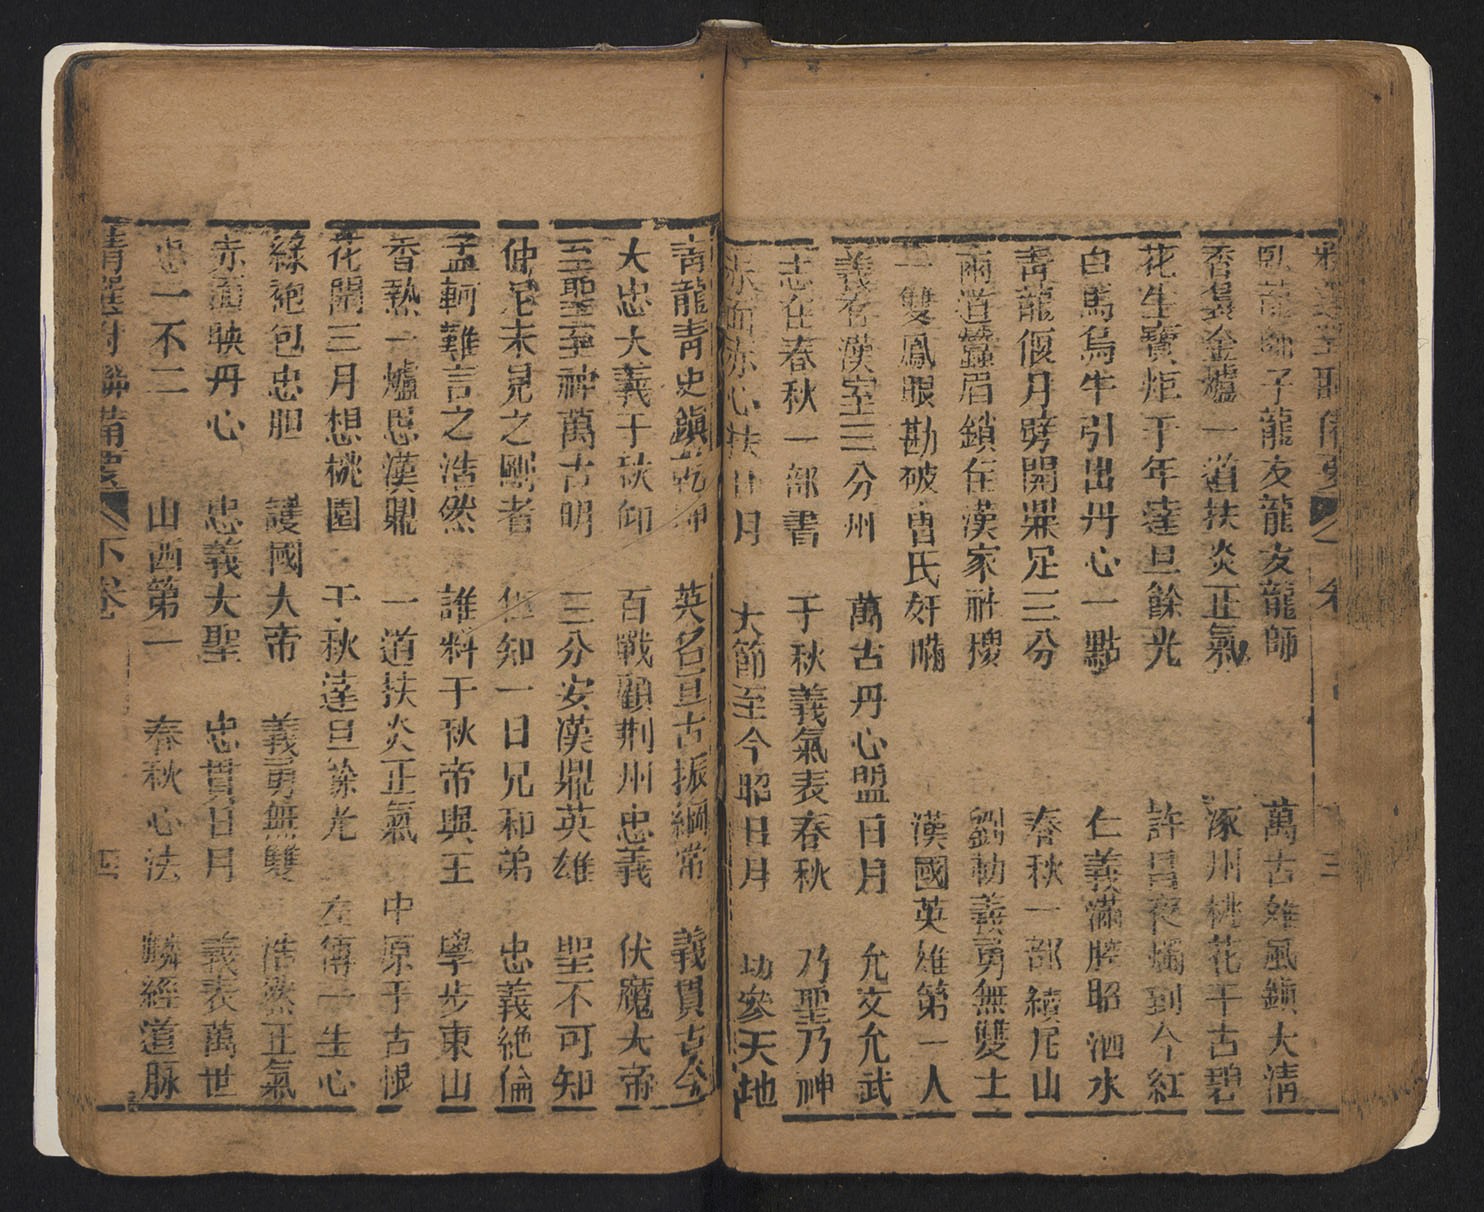 臥龍師子龍友龍友龍師 萬古雄風鎮大清
香裊金爐一道扶炎正氣 涿州桃花千古碧
花生寶炬千年達旦餘光 許昌夜燭到今紅
白馬烏牛引出丹心一點 仁義滿腔昭泗水
青龍偃月劈開鼎足三分 春秋一部續尼山
兩道蠶眉鎖住漢家社稷 義勇無雙士
一雙鳳眼勘破曹氏奸瞞 漢國英雄第一人
義存漢室三分州 萬古丹心盟日月 允文允武
志在春秋一部書 千秋義氣表春秋 乃聖乃神
赤面赤心扶日月 大節至今昭日月 功參天地
青龍青史鎮乾坤 英名亘古振綱常 義貫古今
大忠大義千秋仰 百戰顧荆州忠義 伏魔大帝
至聖至神萬古明 三分安漢鼎英雄 聖不可知
仲尼未見之剛者 但知一日兄和弟 忠義絶倫
孟軻難言之浩然 誰料千秋帝與王 學步東山
香熱一爐思漢鼎 一道扶炎正氣 中原千古恨
花開三月想桃園 千秋達旦餘光 左傳一生心
綠袍包忠胆 護國大帝 義勇無雙 浩然正氣
赤面映丹心 忠義大聖 忠貫日月 義表萬世
忠一不二 山西第一 春秋心法 麟經道脉
精選對聯備要 下卷 四